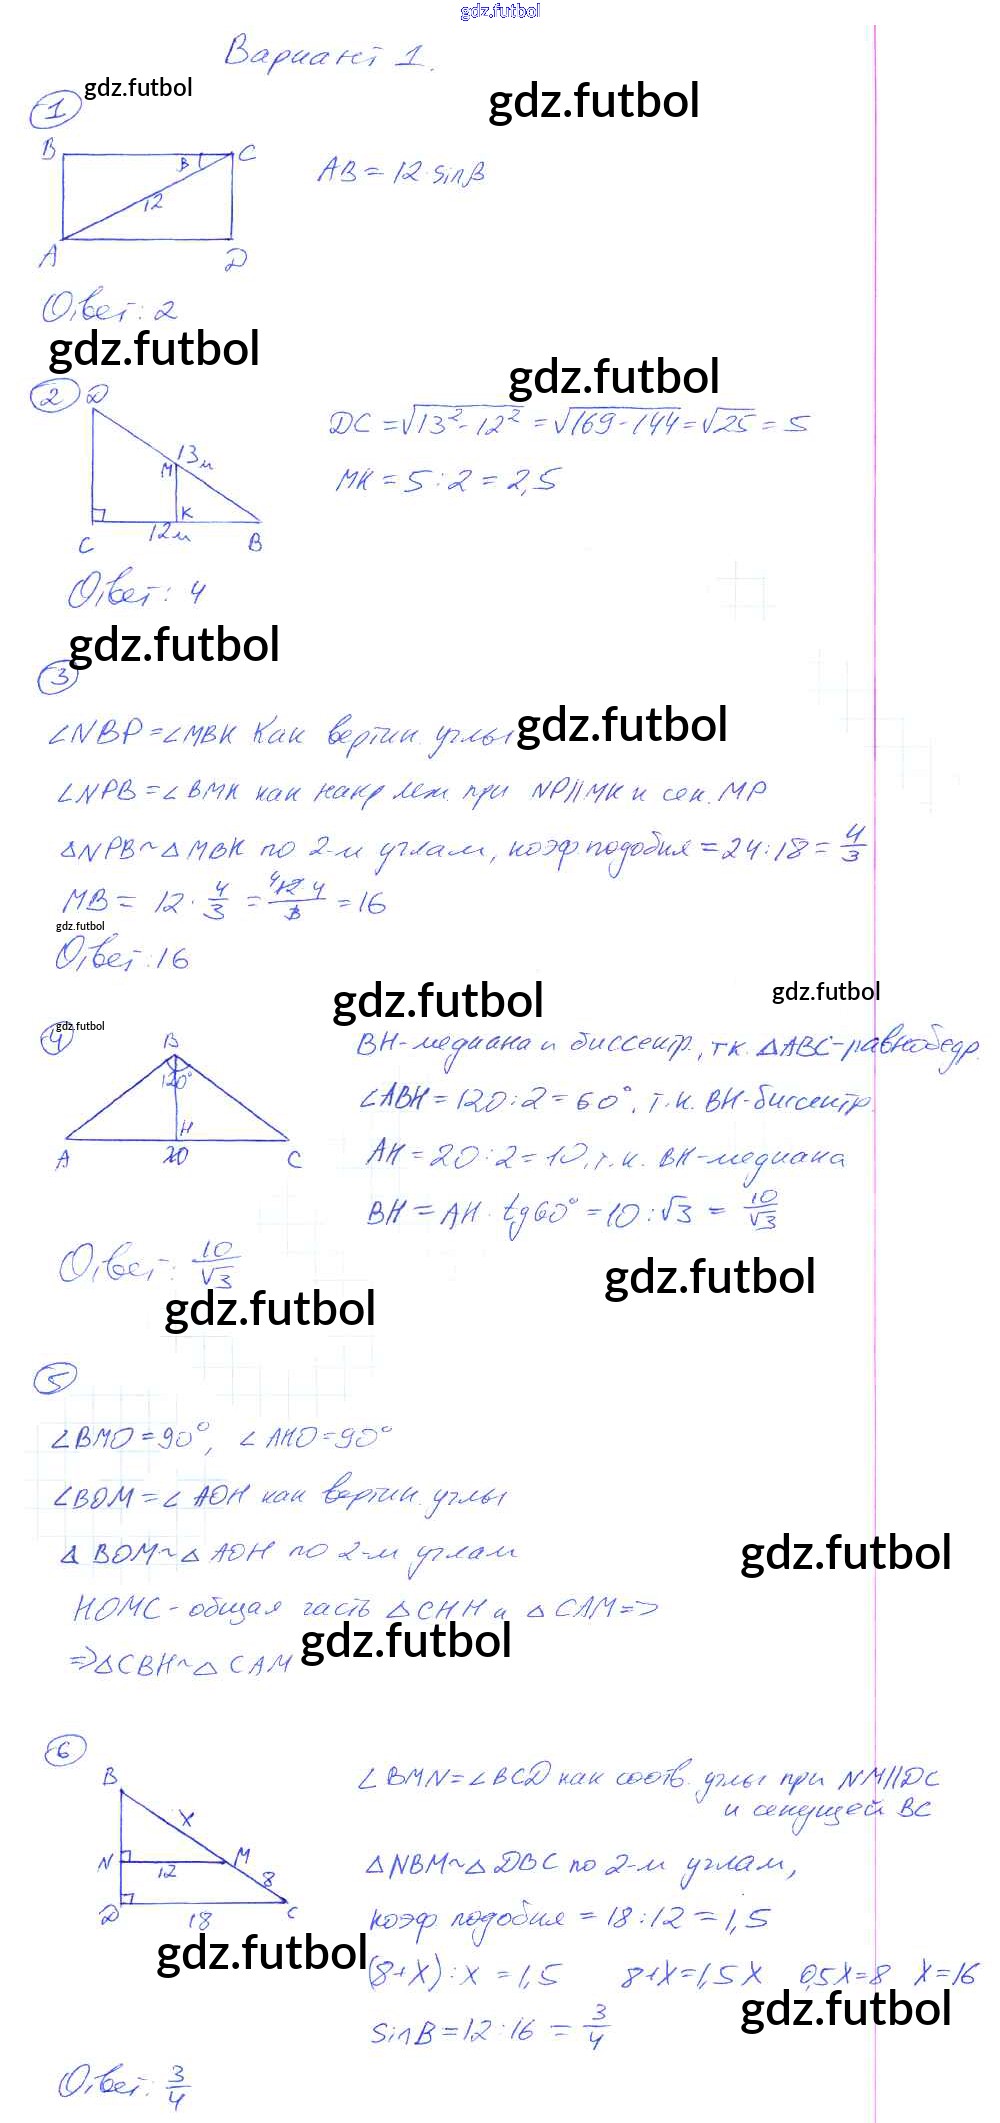 gdz.futbol
Вариант 1.
gdz.futbol
gdz.futbol
1
B C
β
12
A D
AB = 12·sinβ
Ответ: 2
gdz.futbol
gdz.futbol
2
D
13м
M
K
12м
C B
DC = √13²-12² = √169-144 = √25 = 5
MK = 5:2 = 2,5
Ответ: 4
gdz.futbol
3
∠NBP = ∠MBK как вертик. углы
gdz.futbol
∠NPB = ∠BMK как накр леж. при NP||MK и сек. MP
△NPB ~ △MBK по 2-м углам, коэф подобия = 24:18 = 4/3
MB = 12 · 4/3 = 12·4/3 = 16
gdz.futbol
Ответ: 16
gdz.futbol
gdz.futbol
4
gdz.futbol
B
120°
H
A 20 C
BH-медиана и биссектр., т.к. △ABC-равнобедр.
∠ABH = 120:2 = 60°, т.к. BH-биссектр.
AH = 20:2 = 10, т.к. BH-медиана
BH = AH · tg60° = 10:√3 = 10/√3
Ответ: 10/√3
gdz.futbol
gdz.futbol
5
∠BMO = 90°, ∠AHO = 90°
∠BOM = ∠AOH как вертик. углы
△BOM ~ △AOH по 2-м углам
gdz.futbol
HOMC - общая часть △CHH и △CAM =>
gdz.futbol
=> △CBH ~ △CAM
6
B
X
N M
12
8
D C
18
∠BMN = ∠BCD как соотв. углы при NM||DC
и секущей BC
△NBM ~ △DBC по 2-м углам,
коэф подобия = 18:12 = 1,5
gdz.futbol
(8+X):X = 1,5 8+X=1,5X 0,5X=8 X=16
gdz.futbol
sinB = 12:16 = 3/4
Ответ: 3/4